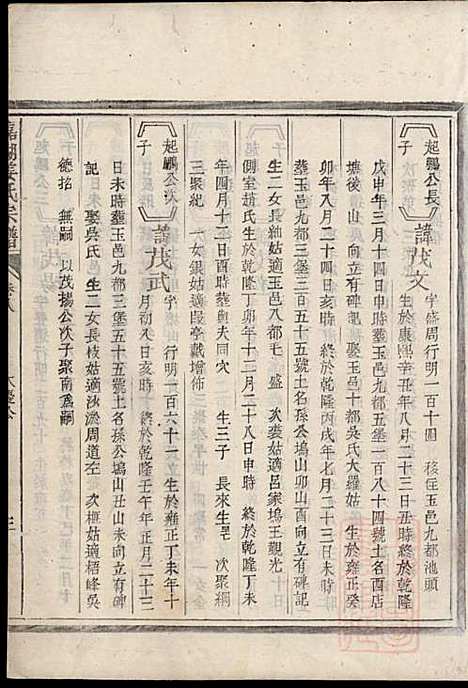 起鵬公長子
諱茂文
字盛周行明一百十圓 移居玉邑九都池頭
生於康熙辛丑年八月二十三日丑時終於乾隆
戊申年三月十四日未時葬玉邑九都五堡一百八十四號土名西庄
塘後山 向立有碑記 娶玉邑十都吳氏大羅姑 生於雍正癸
卯年八月二十四日未時 終於乾隆丙戌年七月二十三日未時
葬玉邑九都三堡五十五號土名孫公塢山卯山酉向立有碑記
生二女長紬姑適玉邑八都毛 盛 次裘姑適呂家塢王觀光 十
側室趙氏生於乾隆丁卯年十二月二十八日申時 終於乾隆丁未
年四月十二日酉時葬與夫同穴 生三子 長來生 次聚綱
三聚紀 一女銀姑適毆亭戴增佈
起鵬公次子
諱茂武
字 行明一百六十一 生於雍正丁未年十
月初八日亥時 終於乾隆壬午年正月二十三
日未時葬玉邑九都三堡五十五號土名孫公塢山丑山未向立有碑
記 娶吳氏 生二女長枝姑適沙淤周道左 次槐姑適梧峰吳
德招 無嗣 以茂揚公次子聚南為嗣
嘉湖姜氏宗譜
卷八
三